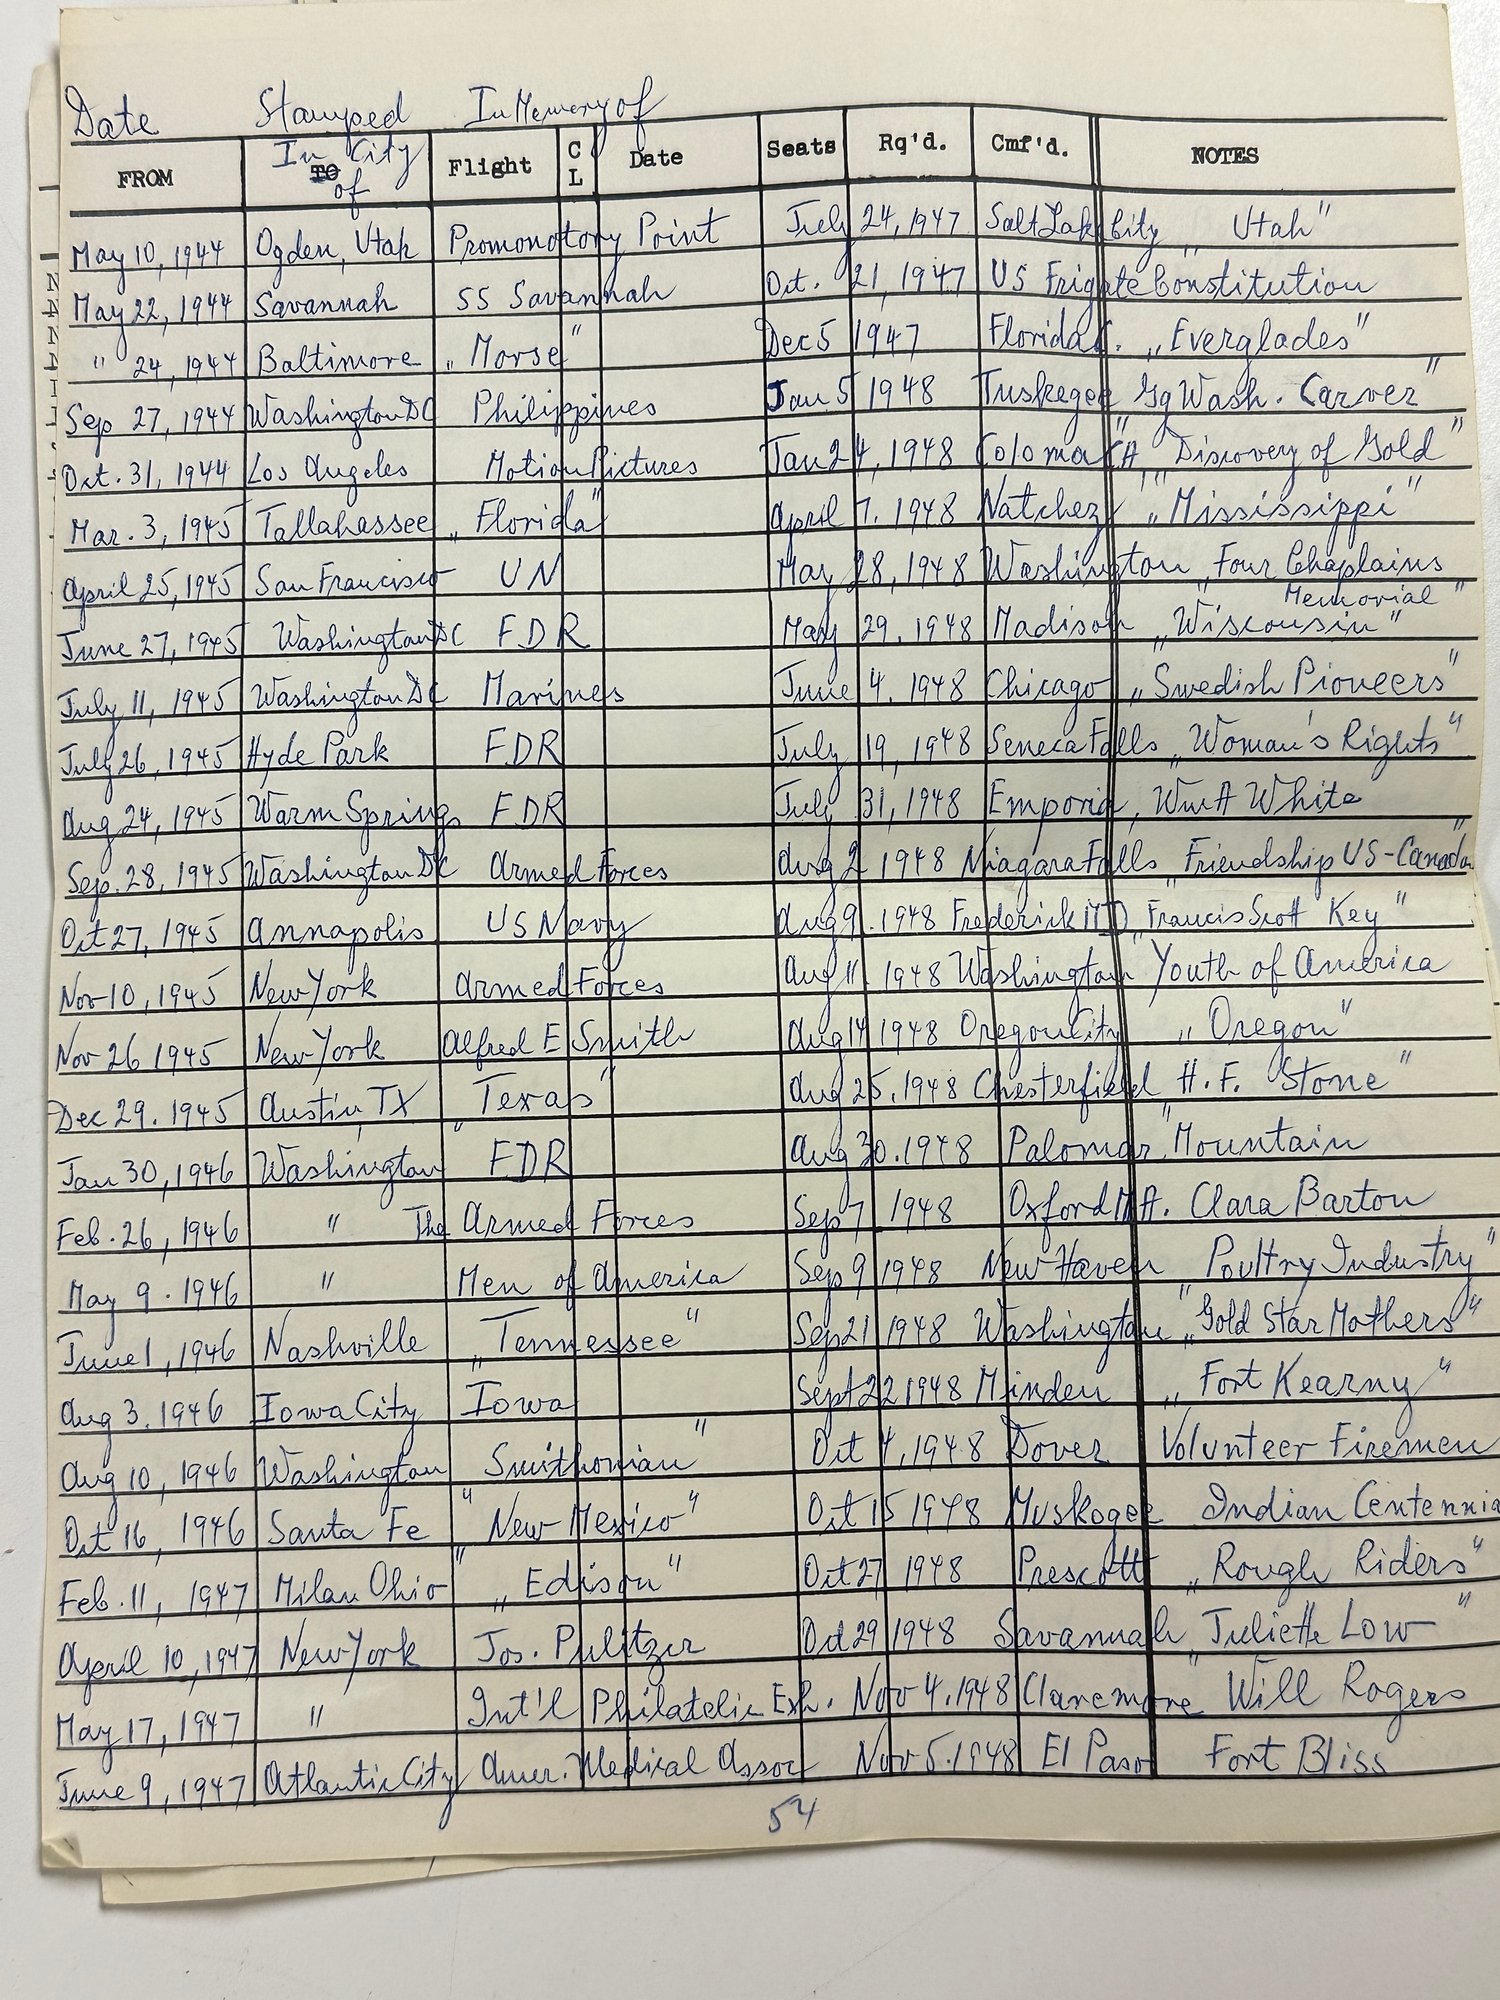 Date Stamped In Memory of
FROM TO In City of Flight CL Date Seats Rq'd. Cmf'd. NOTES
May 10, 1944 Ogden, Utah Promonotory Point July 24, 1947 Salt Lake City „ Utah"
May 22, 1944 Savannah SS Savannah Oct. 21, 1947 US Frigate Constitution
" 24, 1944 Baltimore „ Morse" Dec 5 1947 Florida C. „Everglades"
Sep 27, 1944 Washington DC Philippines Jan 5 1948 Tuskegee „ Gg Wash. Carver"
Oct. 31, 1944 Los Angeles Motion Pictures Jan 24, 1948 Coloma CA „Discovery of Gold"
Mar. 3, 1945 Tallahassee „ Florida" April 7. 1948 Natchez „Mississippi"
April 25, 1945 San Francisco UN May 28, 1948 Washington „Four Chaplains Memorial"
June 27, 1945 Washington DC FDR May 29. 1948 Madison „Wisconsin"
July 11, 1945 Washington DC Marines June 4. 1948 Chicago „Swedish Pioneers"
July 26, 1945 Hyde Park FDR July 19, 1948 Seneca Falls „Woman's Rights"
Aug 24, 1945 Warm Springs FDR July 31, 1948 Emporia, Wm A White
Sep. 28, 1945 Washington DC Armed Forces Aug 2 1948 Niagara Falls „Friendship US-Canada"
Oct 27, 1945 Annapolis US Navy Aug 9. 1948 Frederick MD „Francis Scott Key"
Nov 10, 1945 New York Armed Forces Aug 11 1948 Washington Youth of America
Nov 26 1945 New York Alfred E Smith Aug 14 1948 Oregon City „ Oregon"
Dec 29. 1945 Austin, TX „ Texas" Aug 25. 1948 Chesterfield „ H. F. Stone"
Jan 30, 1946 Washington FDR Aug 30. 1948 Palomar Mountain
Feb. 26, 1946 " The Armed Forces Sep 7 1948 Oxford MA. Clara Barton
May 9. 1946 " Men of America Sep 9 1948 New Haven „ Poultry Industry"
June 1, 1946 Nashville „Tennessee" Sep 21 1948 Washington „Gold Star Mothers"
Aug 3. 1946 Iowa City Iowa Sept 22 1948 Minden „ Fort Kearny"
Aug 10, 1946 Washington „ Smithonian" Oct 4. 1948 Dover Volunteer Firemen
Oct 16, 1946 Santa Fe „ New Mexico" Oct 15 1948 Muskogee Indian Centennia
Feb. 11, 1947 Milan Ohio „ Edison" Oct 27 1948 Prescott „Rough Riders"
April 10, 1947 New York Jos. Pulitzer Oct 29 1948 Savannah „Juliette Low"
May 17, 1947 " Int'l Philatelic Exh. Nov 4. 1948 Claremore Will Rogers
June 9, 1947 Atlantic City Amer. Medical Assoc Nov 5. 1948 El Paso Fort Bliss
54